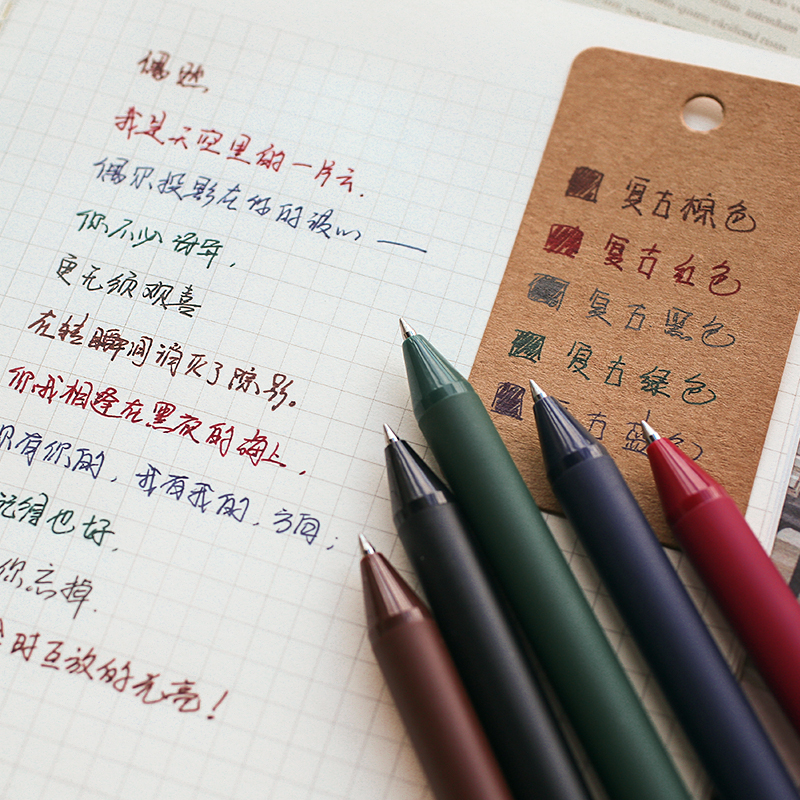 偶然
我是天空里的一片云.
偶尔投影在你的波心 ——
你不必讶异,
更无须欢喜
在转瞬间消灭了踪影。
你我相逢在黑夜的海上,
你有你的, 我有我的, 方向;
记得也好,
你忘掉.
时互放的光亮!
复古棕色
复古红色
复古黑色
复古绿色
复古蓝色